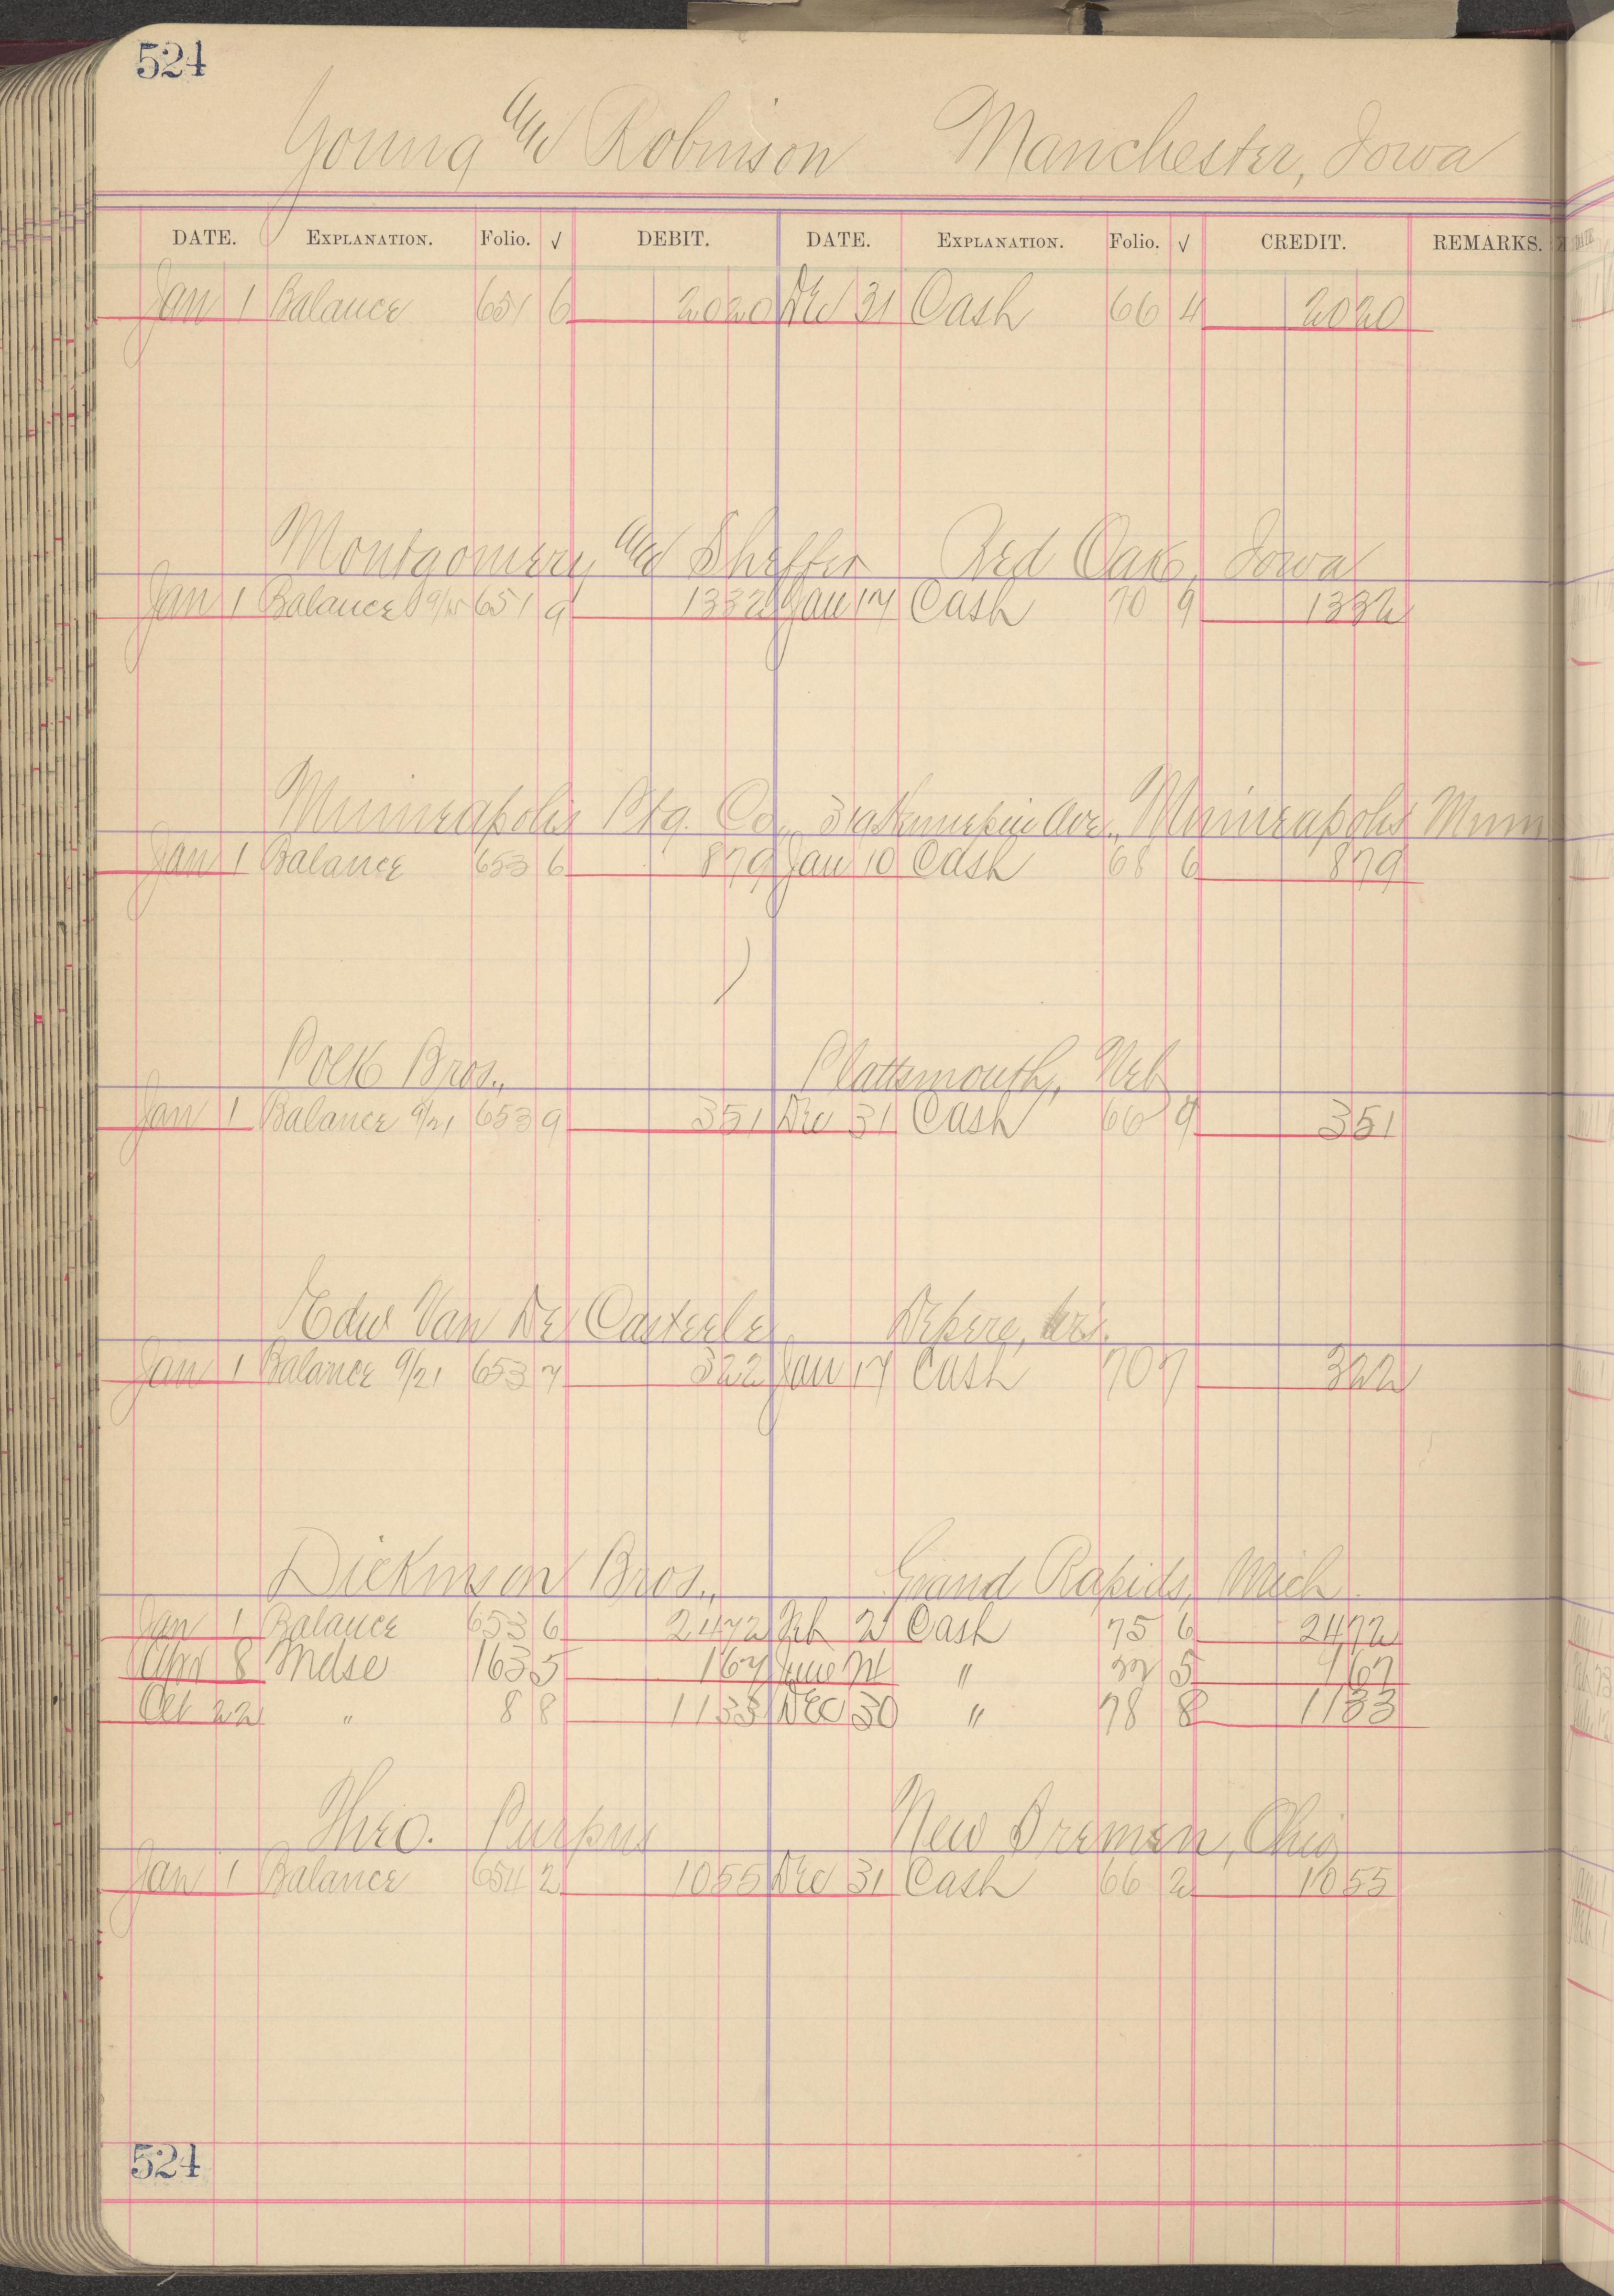 524
Young and Robinson Manchester, Iowa
DATE. EXPLANATION. Folio. √ DEBIT. DATE. EXPLANATION. Folio. √ CREDIT. REMARKS.
Jan 1 Balance 651 6 2020 Dec 31 Cash 66 4 2020
Montgomery and Sheffer Red Oak, Iowa
Jan 1 Balance 651 9 1332 Jan 17 Cash 70 9 1332
Minneapolis Ptg. Co., Hennepin Ave., Minneapolis Minn
Jan 1 Balance 653 6 879 Jan 10 Cash 68 6 879
Polk Bros., Plattsmouth, Neb
Jan 1 Balance 9/21 653 9 351 Dec 31 Cash 66 9 351
Edw Van De Casteele Depere, Wis.
Jan 1 Balance 9/21 653 7 322 Jan 17 Cash 70 7 322
Dickinson Bros., Grand Rapids, Mich.
Jan 1 Balance 653 6 2472 Feb 21 Cash 75 6 2472
Apr 8 Mdse 163 5 167 June " 5 167
Oct 22 " 8 8 1133 Dec 30 " 78 8 1133
Theo. Purpus New Bremen, Ohio
Jan 1 Balance 654 2 1055 Dec 31 Cash 66 2 1055
524